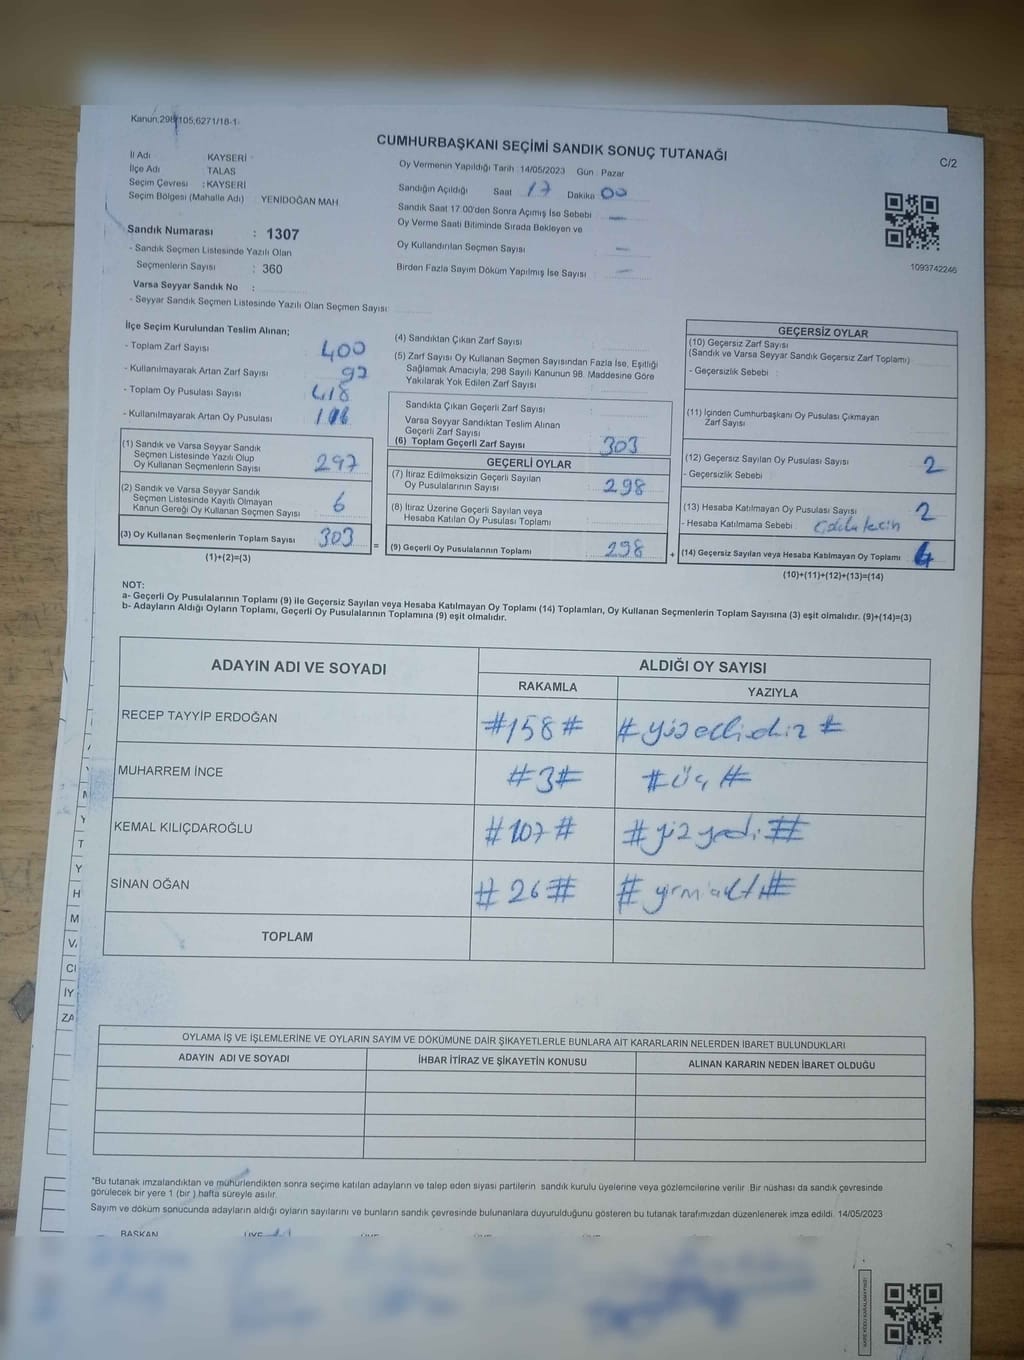 Kanun:298/105,6271/18-1
CUMHURBAŞKANI SEÇİMİ SANDIK SONUÇ TUTANAĞI
C/2
İl Adı KAYSERİ
İlçe Adı TALAS
Seçim Çevresi : KAYSERİ
Seçim Bölgesi (Mahalle Adı) : YENİDOĞAN MAH
Sandık Numarası : 1307
- Sandık Seçmen Listesinde Yazılı Olan
Seçmenlerin Sayısı : 360
Varsa Seyyar Sandık No :
- Seyyar Sandık Seçmen Listesinde Yazılı Olan Seçmen Sayısı:
Oy Vermenin Yapıldığı Tarih : 14/05/2023 Gün : Pazar
Sandığın Açıldığı Saat 17 Dakika 00
Sandık Saat 17.00'den Sonra Açımış İse Sebebi : —
Oy Verme Saati Bitiminde Sırada Bekleyen ve
Oy Kullandırılan Seçmen Sayısı : —
Birden Fazla Sayım Döküm Yapılmış İse Sayısı : —
1093742246
İlçe Seçim Kurulundan Teslim Alınan;
- Toplam Zarf Sayısı : 400
- Kullanılmayarak Artan Zarf Sayısı : 97
- Toplam Oy Pusulası Sayısı : 418
- Kullanılmayarak Artan Oy Pusulası :
(1) Sandık ve Varsa Seyyar Sandık
Seçmen Listesinde Yazılı Olup
Oy Kullanan Seçmenlerin Sayısı : 297
(2) Sandık ve Varsa Seyyar Sandık
Seçmen Listesinde Kayıtlı Olmayan
Kanun Gereği Oy Kullanan Seçmen Sayısı : 6
(3) Oy Kullanan Seçmenlerin Toplam Sayısı : 303
(1)+(2)=(3)
(4) Sandıktan Çıkan Zarf Sayısı :
(5) Zarf Sayısı Oy Kullanan Seçmen Sayısından Fazla İse, Eşitliği
Sağlamak Amacıyla, 298 Sayılı Kanunun 98. Maddesine Göre
Yakılarak Yok Edilen Zarf Sayısı :
Sandıkta Çıkan Geçerli Zarf Sayısı :
Varsa Seyyar Sandıktan Teslim Alınan
Geçerli Zarf Sayısı :
(6) Toplam Geçerli Zarf Sayısı : 303
GEÇERLİ OYLAR
(7) İtiraz Edilmeksizin Geçerli Sayılan
Oy Pusulalarının Sayısı : 298
(8) İtiraz Üzerine Geçerli Sayılan veya
Hesaba Katılan Oy Pusulası Toplamı :
= (9) Geçerli Oy Pusulalarının Toplamı : 298 +
GEÇERSİZ OYLAR
(10) Geçersiz Zarf Sayısı
(Sandık ve Varsa Seyyar Sandık Geçersiz Zarf Toplamı)
- Geçersizlik Sebebi :
(11) İçinden Cumhurbaşkanı Oy Pusulası Çıkmayan
Zarf Sayısı
(12) Geçersiz Sayılan Oy Pusulası Sayısı : 2
- Geçersizlik Sebebi :
(13) Hesaba Katılmayan Oy Pusulası Sayısı : 2
- Hesaba Katılmama Sebebi :
(14) Geçersiz Sayılan veya Hesaba Katılmayan Oy Toplamı :
(10)+(11)+(12)+(13)=(14)
NOT:
a- Geçerli Oy Pusulalarının Toplamı (9) ile Geçersiz Sayılan veya Hesaba Katılmayan Oy Toplamı (14) Toplamları, Oy Kullanan Seçmenlerin Toplam Sayısına (3) eşit olmalıdır. (9)+(14)=(3)
b- Adayların Aldığı Oyların Toplamı, Geçerli Oy Pusulalarının Toplamına (9) eşit olmalıdır.
ADAYIN ADI VE SOYADI ALDIĞI OY SAYISI
RAKAMLA YAZIYLA
RECEP TAYYİP ERDOĞAN #158# # yüzellisekiz #
MUHARREM İNCE #3# # üç #
KEMAL KILIÇDAROĞLU #107# # yüzyedi #
SİNAN OĞAN #26# # yirmialtı #
TOPLAM
OYLAMA İŞ VE İŞLEMLERİNE VE OYLARIN SAYIM VE DÖKÜMÜNE DAİR ŞİKAYETLERLE BUNLARA AİT KARARLARIN NELERDEN İBARET BULUNDUKLARI
ADAYIN ADI VE SOYADI İHBAR İTİRAZ VE ŞİKAYETİN KONUSU ALINAN KARARIN NEDEN İBARET OLDUĞU
*Bu tutanak imzalandıktan ve mühürlendikten sonra seçime katılan adayların ve talep eden siyasi partilerin sandık kurulu üyelerine veya gözlemcilerine verilir. Bir nüshası da sandık çevresinde
görülecek bir yere 1 (bir ) hafta süreyle asılır.
Sayım ve döküm sonucunda adayların aldığı oyların sayılarını ve bunların sandık çevresinde bulunanlara duyurulduğunu gösteren bu tutanak tarafımızdan düzenlenerek imza edildi. 14/05/2023
BAŞKAN ÜYE ÜYE ÜYE ÜYE